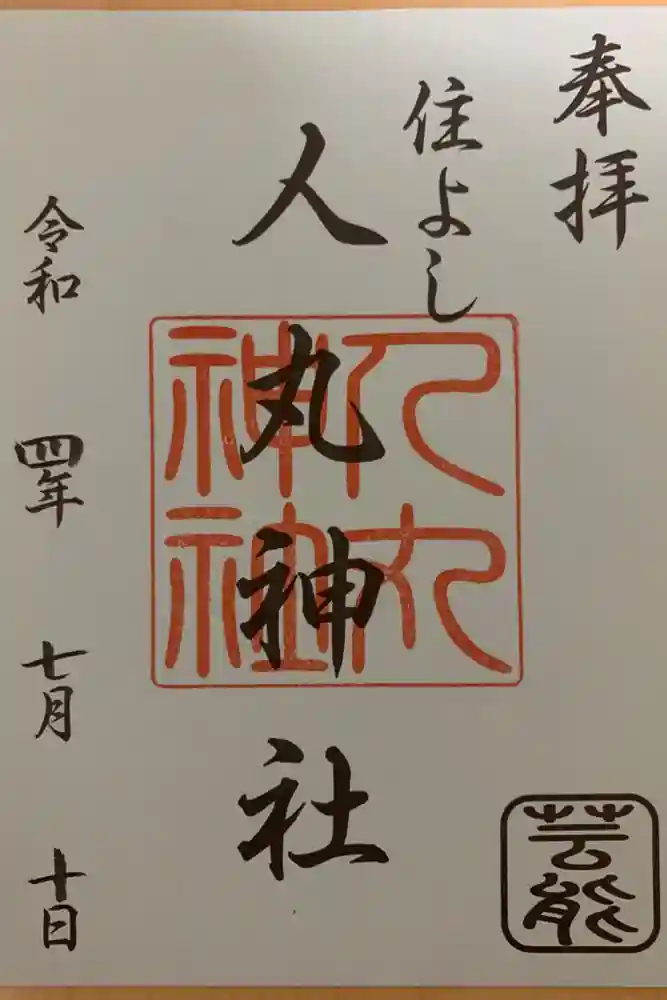 奉拝
住よし
人丸神社
人丸
神社
芸能
令和 四年 七月 十日